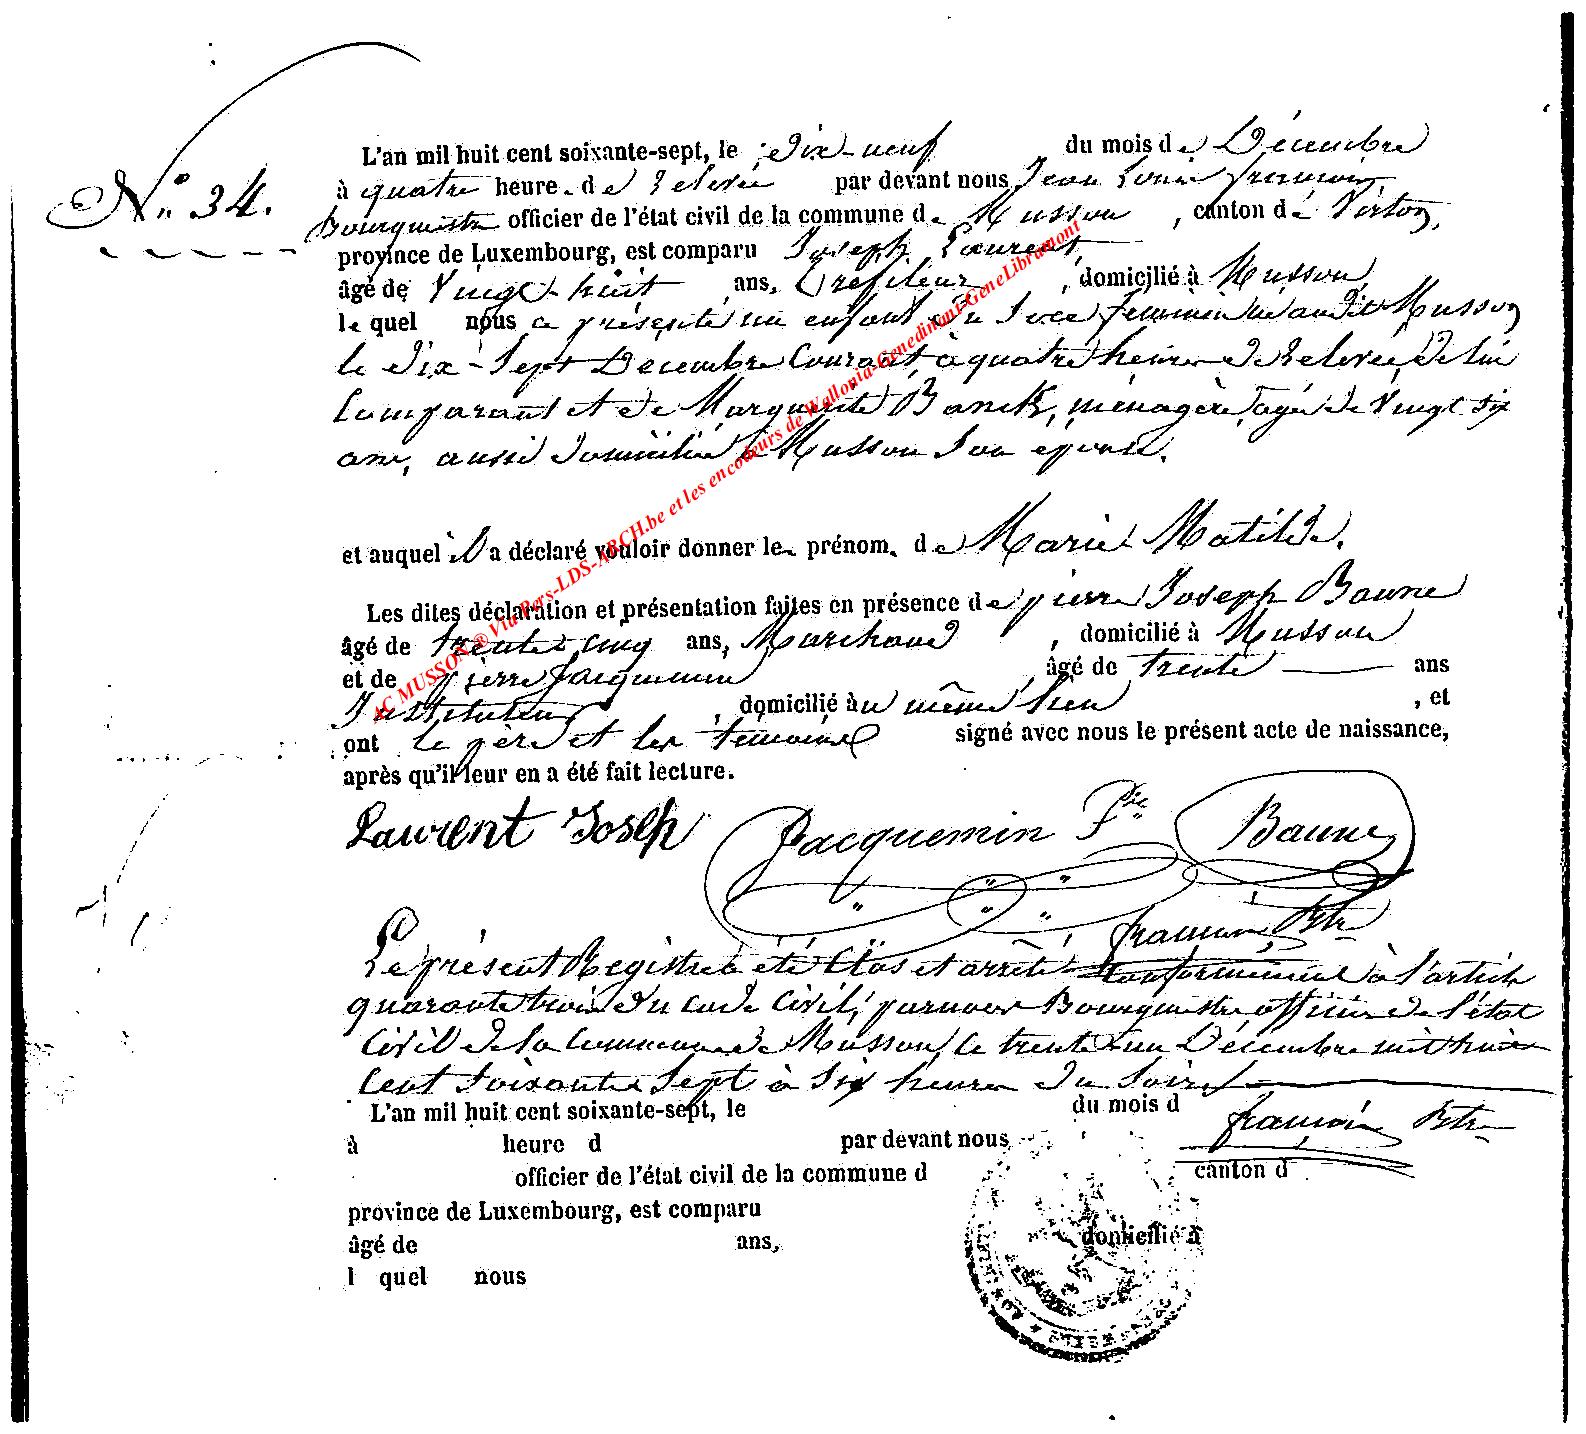 N° 34.
L'an mil huit cent soixante-sept, le dix-neuf du mois de Décembre
à quatre heure de relevée par devant nous Jean Louis françois
Bourgmestre officier de l'état civil de la commune de Musson, canton de Virton,
province de Luxembourg, est comparu Joseph Laurent,
âgé de Vingt-huit ans, Trefileur, domicilié à Musson,
le quel nous a présenté un enfant du Sexe féminin né audit Musson
le dix-Sept Décembre Courant, à quatre heures de relevée, de lui
Comparant et de Marguerite Banck, ménagère, agée de Vingt six
ans, aussi domiciliée à Musson Son épouse.
et auquel il a déclaré vouloir donner le prénom de Marie Matilde.
Les dites déclaration et présentation faites en présence de pierre Joseph Baune
âgé de trente cinq ans, Marchand, domicilié à Musson
et de pierre Jacquemin, âgé de trente ans
Instituteur, domicilié au même lieu, et
ont le père et les témoins signé avec nous le présent acte de naissance,
après qu'il leur en a été fait lecture.
Laurent Joseph Jacquemin Pre Baune
françois, Btre
Le présent Registre à été Clos et arrêté Conformément à l'article
quarante trois du code Civil, par nous Bourgmestre officier de l'état
Civil de la Commune de Musson, le trente un Décembre mil huit
Cent Soixante Sept à Six heures du Soir
L'an mil huit cent soixante-sept, le du mois d
françois Btre
à heure d par devant nous
officier de l'état civil de la commune d canton d
province de Luxembourg, est comparu
âgé de ans, domicilié à
l quel nous
AC MUSSON ® Via Pers-LDS-ARCH.be et les encodeurs de Wallonia-Genedinant-GeneLibramont